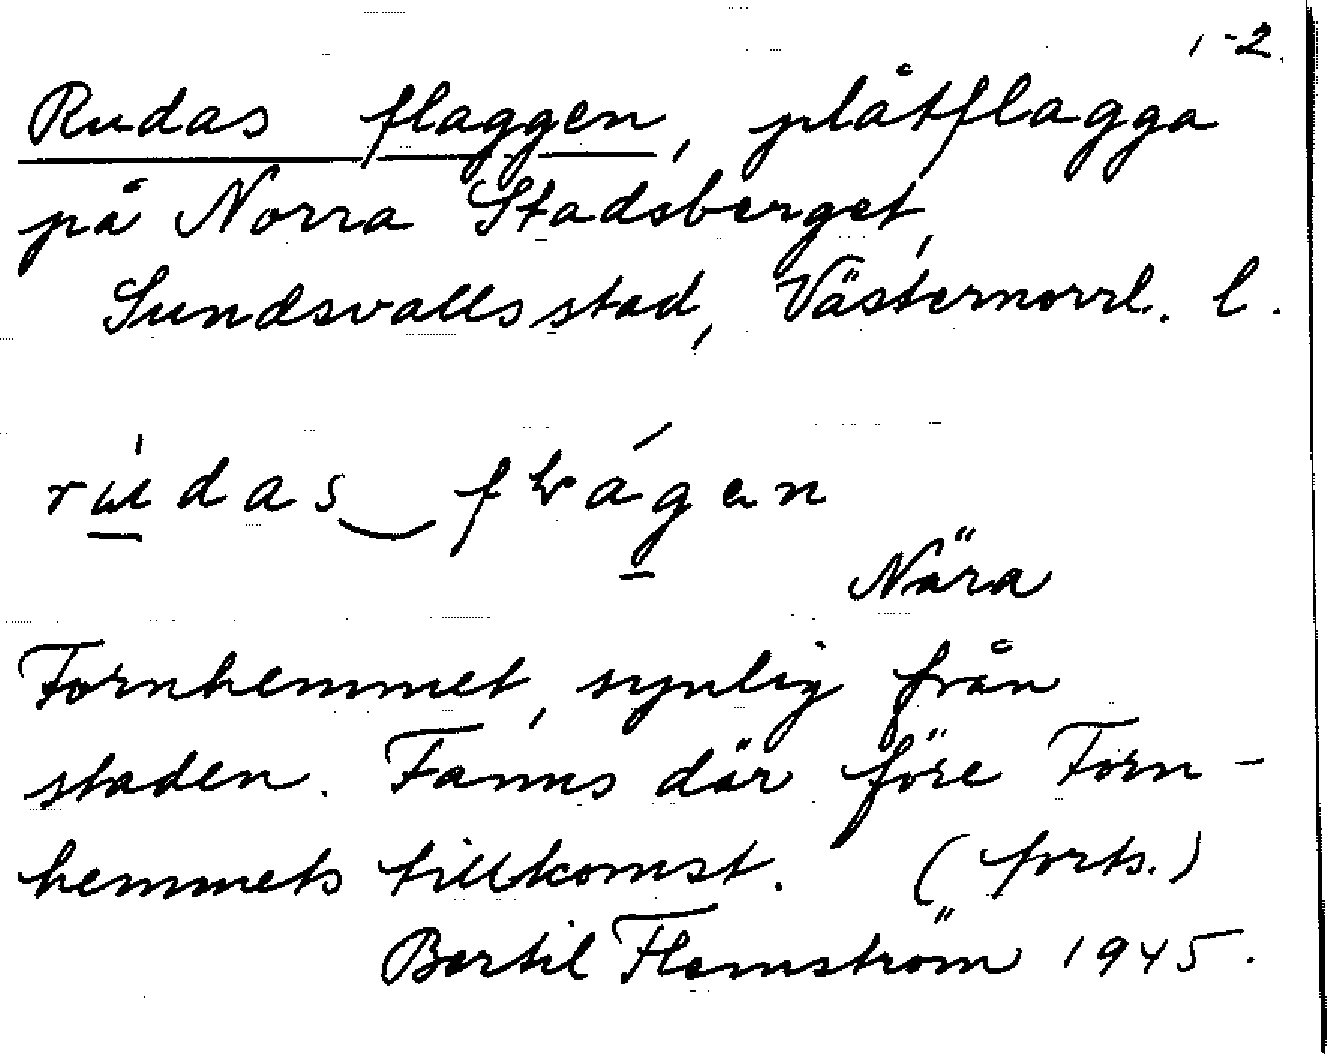 1-2.
Rudas flaggen, plåtflagga
på Norra Stadsberget,
Sundsvalls stad, Västernorrl. l.
rúdas‿flágen
Nära
Fornhemmet, synlig från
staden. Fanns där före Forn-
hemmets tillkomst. (forts.)
Bertil Flemström 1945.